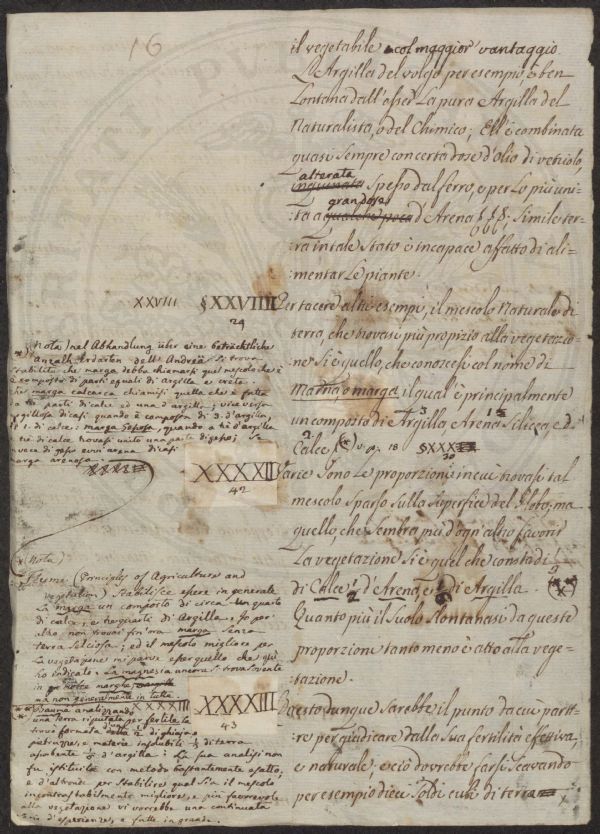 16
il vegetabile col maggior vantaggio
L'Argilla del volgo per esempio, è ben
Lontana dall'esser La pura Argilla del
Naturalista, o del Chimico; Ell'è combinata
quasi sempre con certa dose d'olio di vetriolo,
alterata
inquinata spesso dal ferro, e per Lo più uni=
grandose
:ta a qualche poca d'Arena §§§. Simile ter=
:ra in tale Stato è incapace affatto di ali=
:mentar Le piante.
XXVIII §XXVIIII Per tacere altri esempi, il mescolo Naturale di
29
terra, che trovasi più propizio alla vegetazio=
:ne si è quello, che conoscesi col nome di
Marna o marga, il qual'è principalmente
un composto di Argilla, Arena Silicea, e d
Calce (*) v. pag. 18 §XXX
Varie sono Le proporzioni in cui trovasi tal
mescolo sparso sulla superficie del Globo, ma
quello, che sembra più d'ogni altro favorir
La vegetazione si è quel che consta di
di Calce, d'Arena, e di Argilla.
Quanto più il Suolo slontanasi da queste
proporzioni tanto meno è atto alla vege=
:tazione.
Questo dunque sarebbe il punto da cui parti=
:re per giudicare dalla Sua fertilità effettiva,
e naturale; e ciò dovrebbe farsi scavando
per esempio dieci Soldi cubi di terra
* (Nota) nel Abhandlung über eine beträchtliche
Anzahl Erdarten dell' Andreä si trova
stabilito che marga debba chiamarsi quel mescolo che è
composto di parti eguali di argilla e creta:
che marga calcarea chiamisi quella che è fatta
di tre parti di calce ed una d'argilla; viceversa
argillosa dicasi quando è composta di 3. d'argilla,
ed 1. di calce: marga gessosa, quando a tre d'argilla
e tre di calce trovasi unito una parte di gesso; se
invece di gesso evvi arena dicasi
marga arenosa.
XXXXII
42
(Nota)
Home (Principles of Agriculture and
Vegetation) Stabilisce essere in generale
La marga un composto di circa un quarto
di calce, e tre quarti d'Argilla, Io per
altro non trovai fin'ora marga Senza
terra Selciosa; ed il mescolo migliore per
La vegetazione mi parve esser quello che qui
ho indicato. La magnesia ancora si trova sovente
in nostre marghe
ma non generalmente in tutte.
XXXXIII
43
** Bauma analizzando
una terra riputata per fertile la
trovò formata della di ghiajino
pietruzze, e materie insolubili di terra
assorbente d'argilla. La sua analisi non
fu istituita con metodo bastantemente esatto;
e d'altronde per stabilire qual sia il mescolo
incontrastabilmente migliore, e più favorevole
alla vegetazione vi vorrebbe una continuata
serie d'esperienze, e fatte in grande.